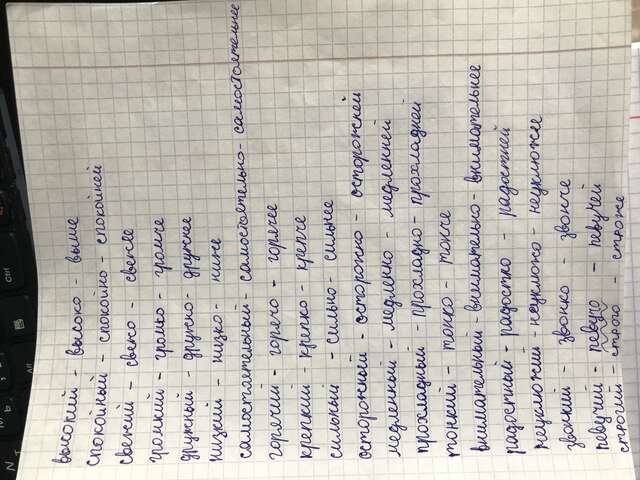 высокий - высоко - выше
спокойный - спокойно - спокойней
свежий - свежо - свежее
громкий - громко - громче
дружный - дружно - дружнее
низкий - низко - ниже
самостоятельный - самостоятельно - самостоятельнее
горячий - горячо - горячее
крепкий - крепко - крепче
сильный - сильно - сильнее
осторожный - осторожно - осторожней
медленный - медленно - медленней
прохладный - прохладно - прохладней
тонкий - тонко - тонче
внимательный внимательно - внимательнее
радостный - радостно - радостней
неуклюжий неуклюжо - неуклюжее
звонкий - звонко - звонче
певучий - певучо - певучей
строгий - строго - строже
Ctrl
N
M